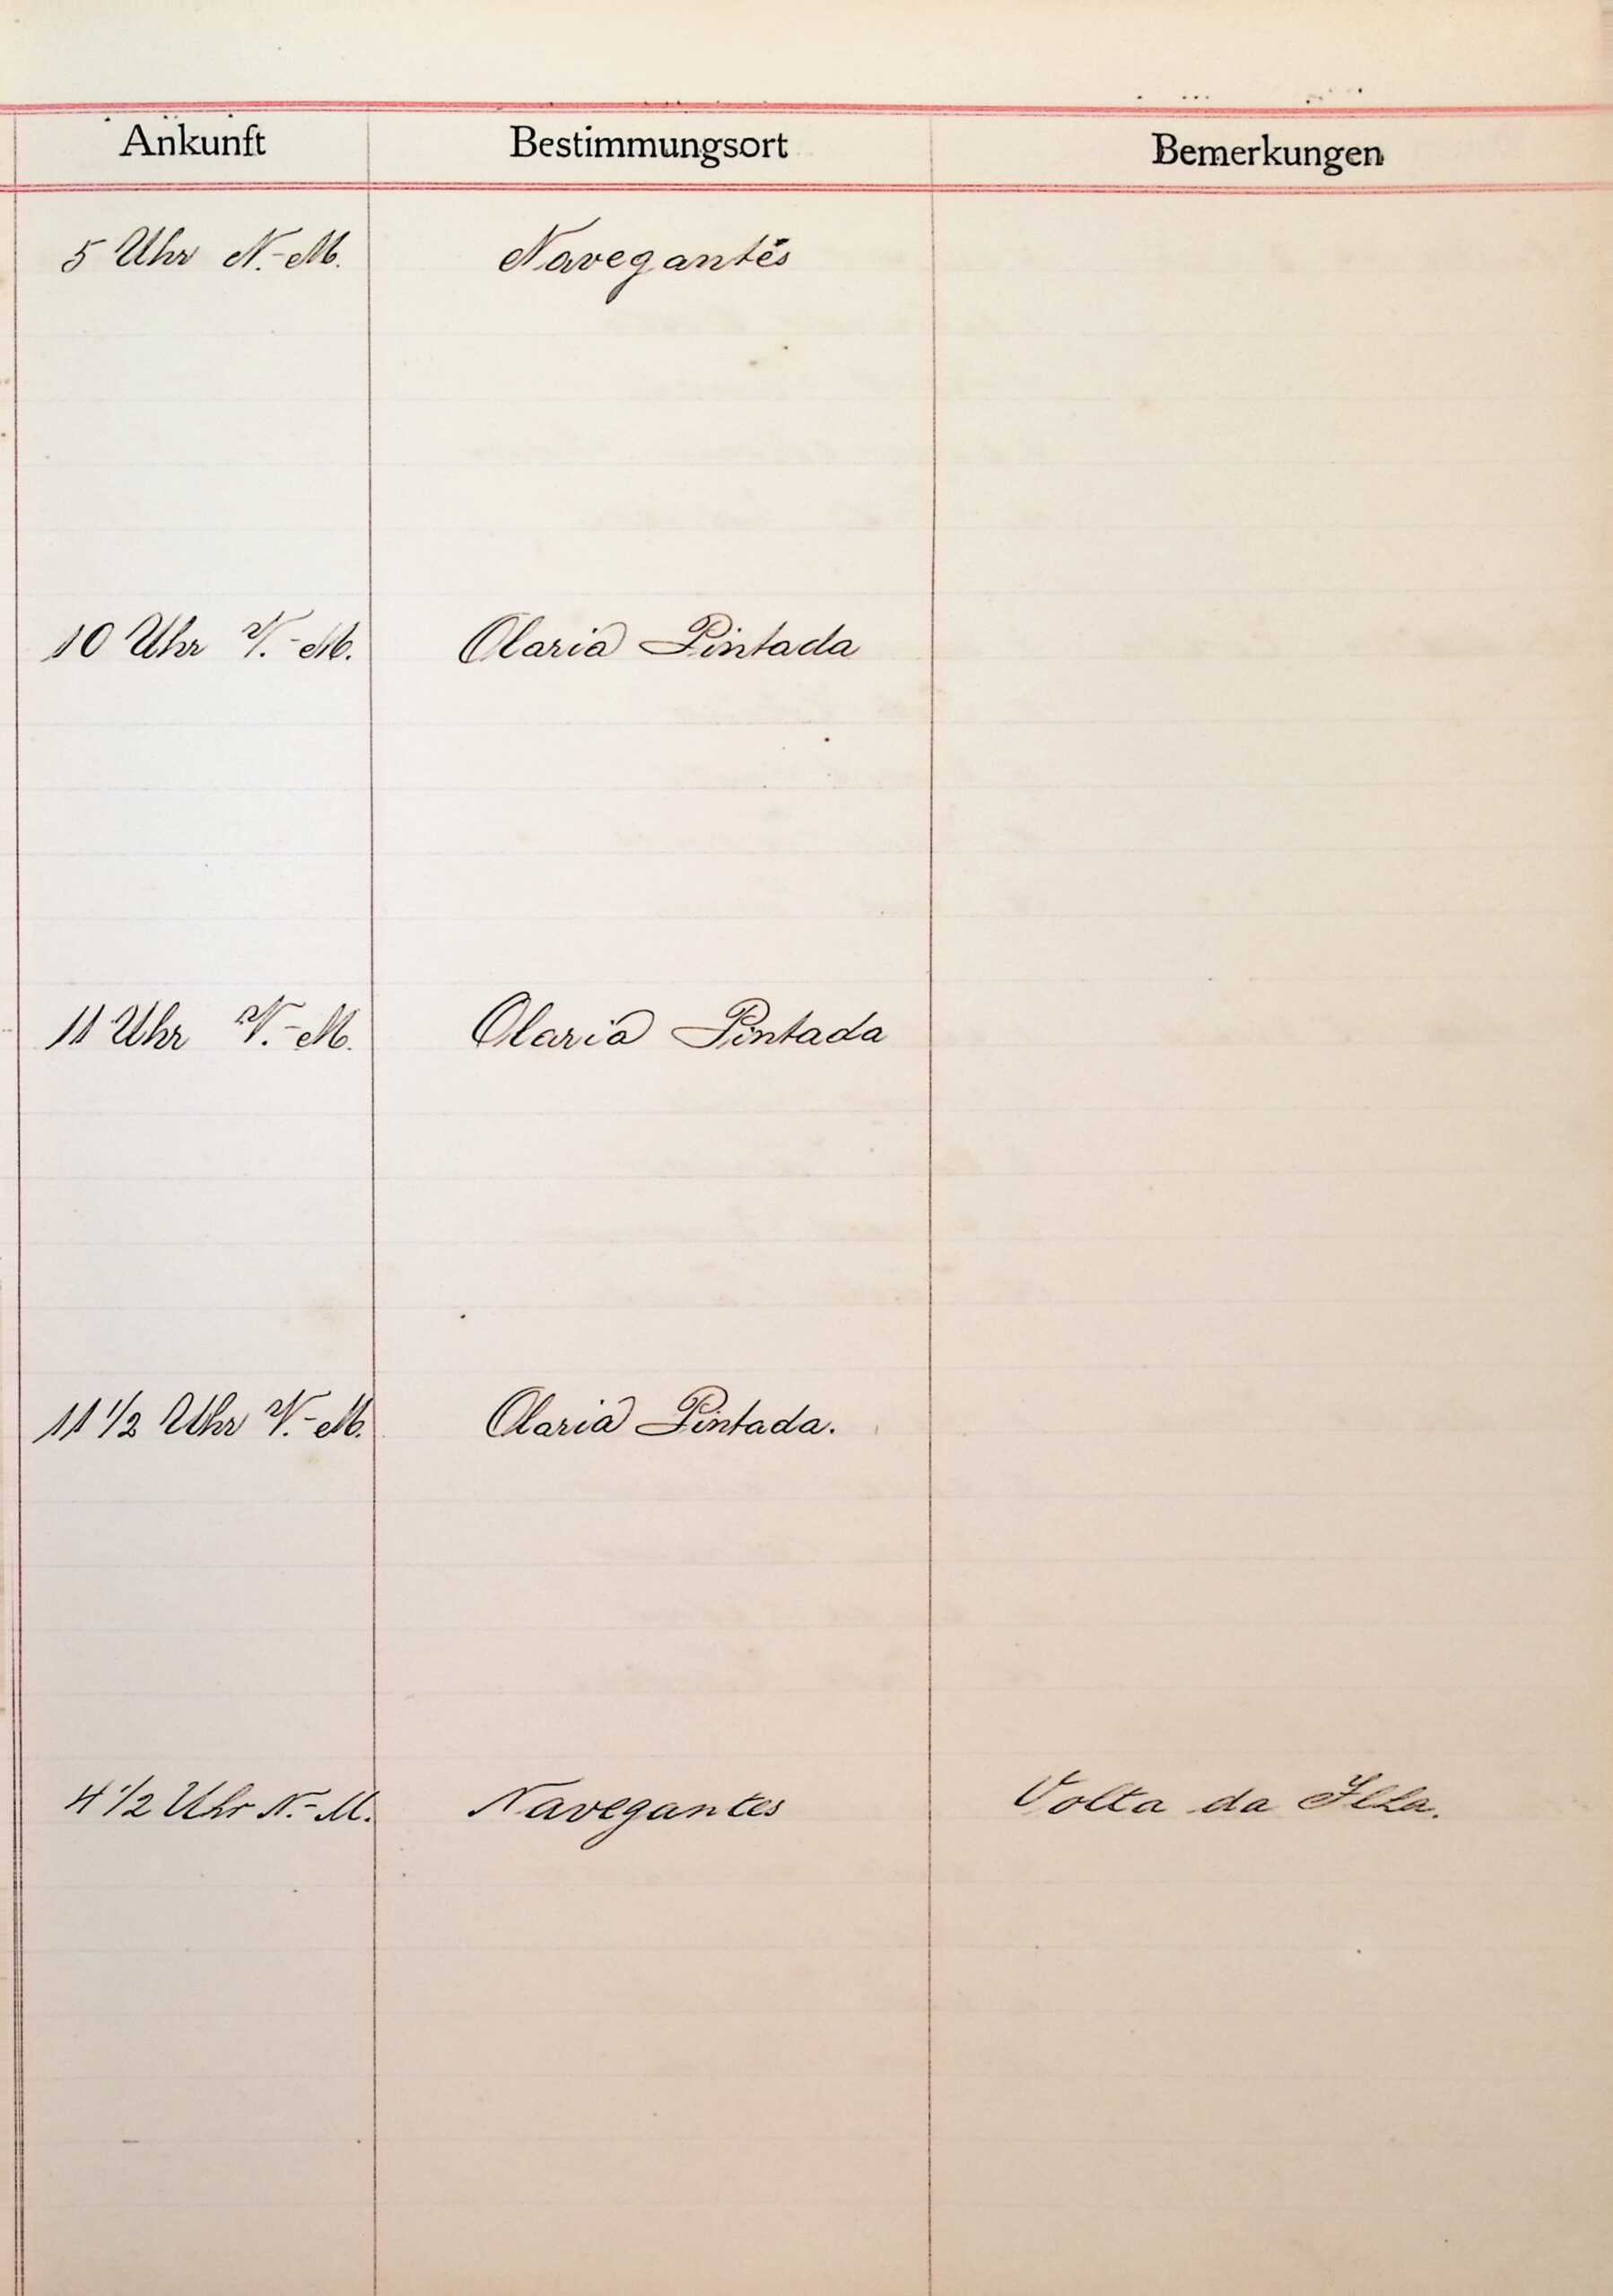 Ankunft Bestimmungsort Bemerkungen
5 Uhr N.-M. Navegantes
10 Uhr V.-M. Olaria Pintada
11 Uhr V.-M. Olaria Pintada
11 1/2 Uhr V.-M. Olaria Pintada.
4 1/2 Uhr N.-M. Navegantes Volta da Ilha.